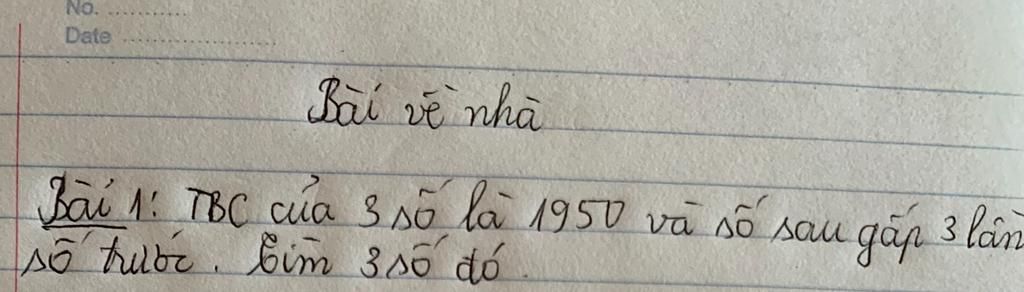 No. ............
Date ........................
Bài về nhà
Bài 1: TBC của 3 số là 1950 và số sau gấp 3 lần
số trước. Tìm 3 số đó.